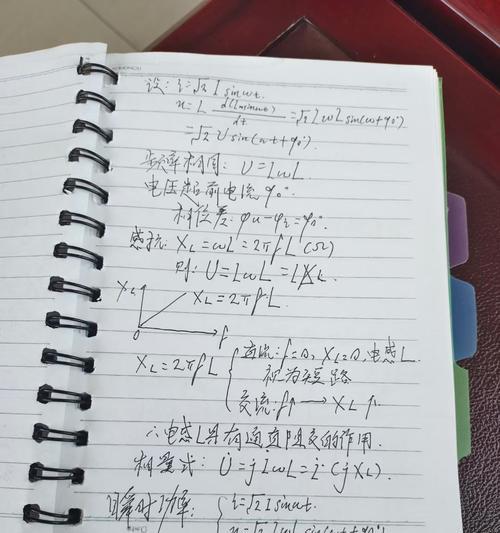 设: i=√2 I sinωt.
u=L d(Imsinωt)/dt =√2 IωL sin(ω+90°)
=√2 U sin(ωt+90°).
频率相同: U=IωL
电压超前电流90°.
相位差: φu-φi=90°.
感抗: XL=ωL=2πfL(Ω)
则: U=IωL=IXL.
XL XL=2πfL.
0 f
XL=2πfL { 直流: f=0, XL=0, 电感L
视为短路
交流: f↑ → XL↑.
∴电感L具有通直阻交的作用.
相量式: U̇=jİωL=İ·(jXL).
瞬时功率: { i=√2 I sinωt.
u=√2 IωL sin(ωt+90°)